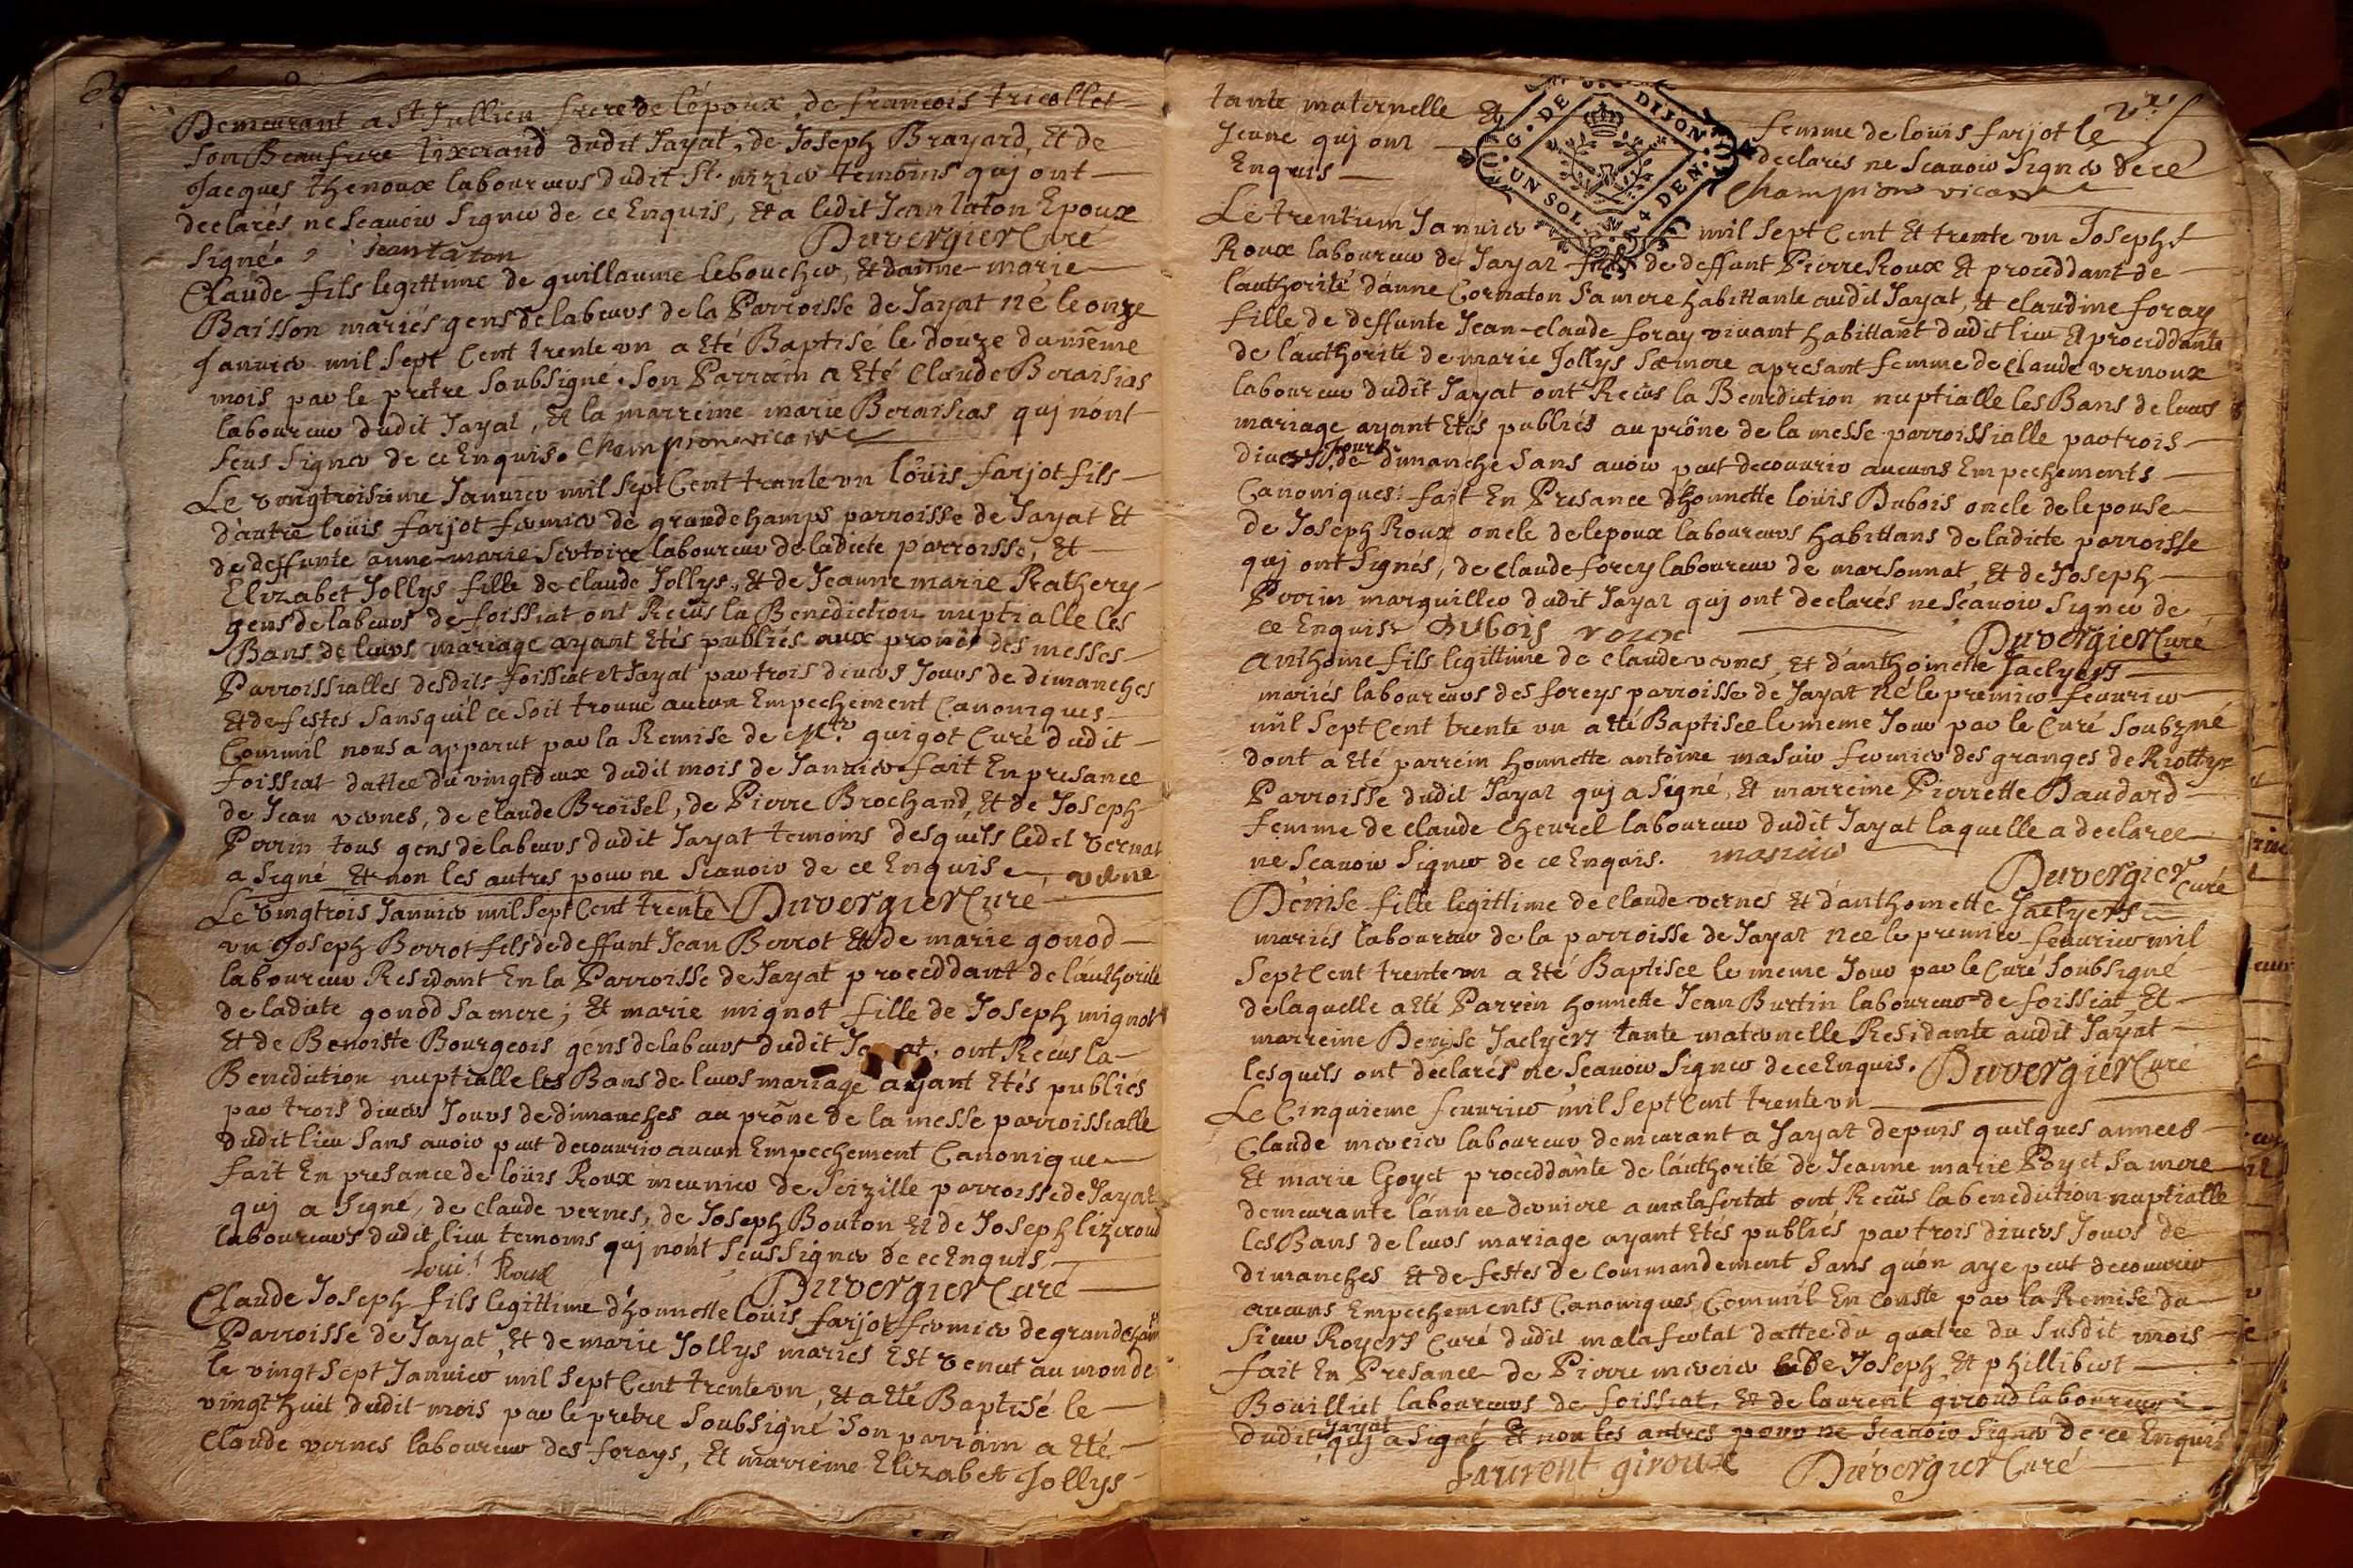 Demeurant a St. Jullien frere de l'époux, de francois tricollet
son Beaufrere tixerand dudit Jayat, de Joseph Brayard, Et de
Jacques thenoux laboureurs dudit St. nizier temoins qui ont
declarés ne scavoir signer de ce Enquis, Et a ledit Jean laton Epoux
signé. Jean laton Duvergier Curé
Claude fils legittime de guillaume leboucher, Et danne marie
Baisson mariés gens de labeurs de la Parroisse de Jayat né le onze
Janvier mil sept Cent trente vn a Eté Baptisé le douze du même
mois par le prêtre soubsigné. Son Parrain a Eté Claude Beraisias
laboureur dudit Jayat, Et la marreine marie Beraisias qui n'ont
sceus signer de ce Enquis. Champion vicaire
Le vingtroisieme Janvier mil sept Cent trante vn loüis farjot fils
d'autre loüis farjot fermier de grandchamps parroisse de Jayat Et
de deffunte anne-marie laboureur de ladicte parroisse, Et
Elizabet Jollys fille de Claude Jollys, Et de Jeanne marie Rathery
gens de labeurs de foissiat, ont Recüs la Benediction nuptialle les
Bans de leurs mariage ayant Etés publiés aux prones des messes
Parroissialles desdits foissiat et Jayat par trois divers Jours de dimanches
Et de festes sans quil ce soit trouvé aucun Empechement Canoniques
Comm'il nous a apparut par la Remise de Mr. guigot Curé dudit
foissiat dattée du vingtdeux dudit mois de Janvier. fait En presance
de Jean vernes, de Claude Broïsel, de Pierre Brochand, Et de Joseph
Perrin tous gens de labeurs dudit Jayat temoins desquels ledit vernat
a signé Et non les autres pour ne scavoir de ce Enquise, verne
Le vingtrois Janvier mil sept Cent trente Duvergier Curé
vn Joseph Berrot fils de deffunt Jean Berrot Et de marie gonod
laboureur Residant En la Parroisse de Jayat proceddant de l'authorité
de ladicte gonod sa mere; Et marie mignot fille de Joseph mignot
Et de Benoiste Bourgeois gens de labeurs dudit Jayat, ont Recüs la
Benediction nuptialle les Bans de leurs mariage ayant Etés publiés
par trois divers Jours de dimanches au prône de la messe parroissialle
dudit lieu sans avoir put decouvrir aucun Empechement Canonique
fait En presance de loüis Roux meunier de Seizille parroisse de Jayat
qui a signé, de Claude vernes, de Joseph Bouton Et de Joseph lizeroud
laboureurs dudit lieu temoins qui n'ont sceus signer de ce Enquis
Loui Roux Duvergier Curé
Claude Joseph fils legittime d'honnette loüis farjot fermier de grandcham
Parroisse de Jayat, Et de marie Jollys mariés Est venut au monde
le vingt sept Janvier mil sept Cent trente vn, Et a Eté Baptisé le
vingthuit dudit mois par le prêtre soubsigné son parrain a Eté
Claude vernes laboureur des forays, Et marreine Elizabet Jollys
tante maternelle Et femme de loüis farjot le
Jeune qui ont declarés ne scavoir signer de ce
Enquis Champion vicaire
G. DE DIJON
UN SOL 4 DEN.
Le trentiem Janvier mil sept Cent Et trente vn Joseph
Roux laboureur de Jayat fils de deffunt Pierre Roux Et proceddant de
l'authorité d'anne Cornaton sa mere habittante audit Jayat, Et Claudine foray
fille de deffunte Jean-Claude foray vivant habittant dudit lieu Et proceddante
de l'authorité de marie Jollys sa mere apresant femme de Claude vernoux
laboureur dudit Jayat ont Recüs la Benediction nuptialle les Bans de leurs
mariage ayant Etés publiés au prône de la messe parroissialle par trois
divers Jours de dimanche sans avoir peut decouvrir aucuns Empechements
Canoniques: fait En Presance d'honnette loüis Dubois oncle de lepouse
de Joseph Roux oncle de lepoux laboureurs habittans de ladicte parroisse
qui ont signés, de Claude forey laboureur de marsonnat, Et de Joseph
Perrin marguiller dudit Jayat qui ont declarés ne scavoir signer de
ce Enquis Dubois roux Duvergier Curé
Anthoine fils legittime de Claude vernes, Et d'anthoinette Jaclyers
mariés laboureurs des foreys parroisse de Jayat né le premier fevrier
mil sept Cent trente vn a Eté Baptisee le meme Jour par le Curé soubzné
dont a Eté parrein honnette antoine masuir fermier des granges de Riottye
Parroisse dudit Jayat qui a signé, Et marreine Pierrette Baudard
femme de Claude Cheurel laboureur dudit Jayat laquelle a declaree
ne scavoir signer de ce Enquis. masuir Duvergier Curé
Denise fille legittime de Claude vernes Et d'anthoinette Jaclyers
mariés laboureur de la parroisse de Jayat nee le premier fevrier mil
sept Cent trente vn a Eté Baptisee le meme Jour par le Curé soubsigné
de laquelle a Eté Parrein honnette Jean Burtin laboureur de foissiat, Et
marreine Denise Jaclyers tante maternelle Residante audit Jayat
lesquels ont déclarés ne scavoir signer de ce Enquis. Duvergier Curé
Le Cinquieme fevrier mil sept Cent trente vn
Claude mercier laboureur demeurant a Jayat depuis quelques annees
Et marie Goyet proceddante de l'authorité de Jeanne marie Poyet sa mere
demeurante l'annee derniere a malafertat ont Recüs la benediction nuptialle
les Bans de leurs mariage ayant Etés publiés par trois divers Jours de
dimanches Et de festes de Commandement sans qu'on aye peut decouvrir
aucuns Empechements Canoniques, Comm'il En Conste par la Remise du
sieur Royers Curé dudit malafertat dattee du quatre du susdit mois
fait En Presance de Pierre mercier de Joseph, Et phillibert
Boüilliet laboureurs de foissiat, Et de laurent giroud laboureur
dudit Jayat qui a signé Et non les autres pour ne scavoir signer de ce Enquis
laurent giroux Duvergier Curé